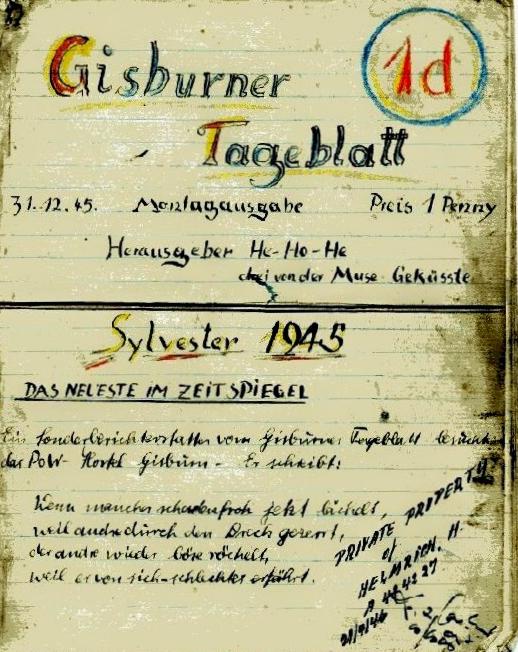 Gisburner
1d
Tageblatt
31.12.45. Montagausgabe Preis 1 Penny
Herausgeber He-Ho-He
drei von der Muse Geküsste
Sylvester 1945
DAS NEUESTE IM ZEITSPIEGEL
Ein Sonderberichterstatter vom Gisburner Tageblatt besuchte
das PoW- Gisburn - Er schreibt:
Wenn mancher schadenfroh jetzt lächelt,
weil andre durch den Dreck gezerrt,
der andre wieder böse röchelt,
weil er von sich - schlechtes erfährt.
PRIVATE PROPERTY
of
HELMRICH, H.